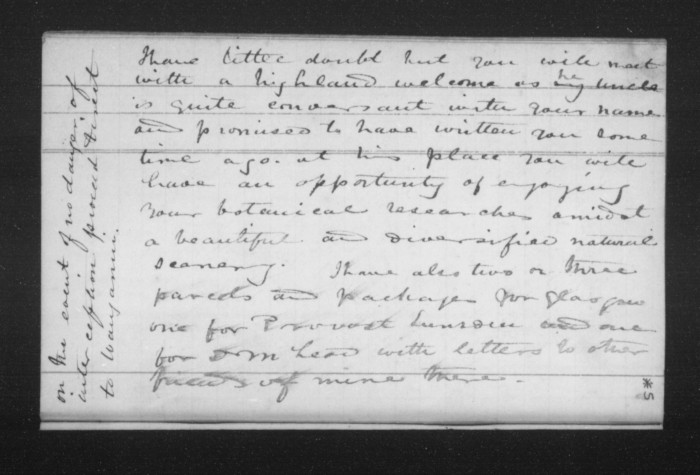 I have little doubt but you will meet
with a highland welcome as he
is quite conversant with your name
and promised to have written you some
time ago. at his place you will
have an opportunity of enjoying
your botanical researches amidst
a beautiful and diversified natural
scenery. I have also two or three
parcels and packages for Glasgow
one for Provost Lumsden and one
for with letters to other
friends of mine there.
in the event of no danger of
interception proceed direct
to Wanganui.
*5